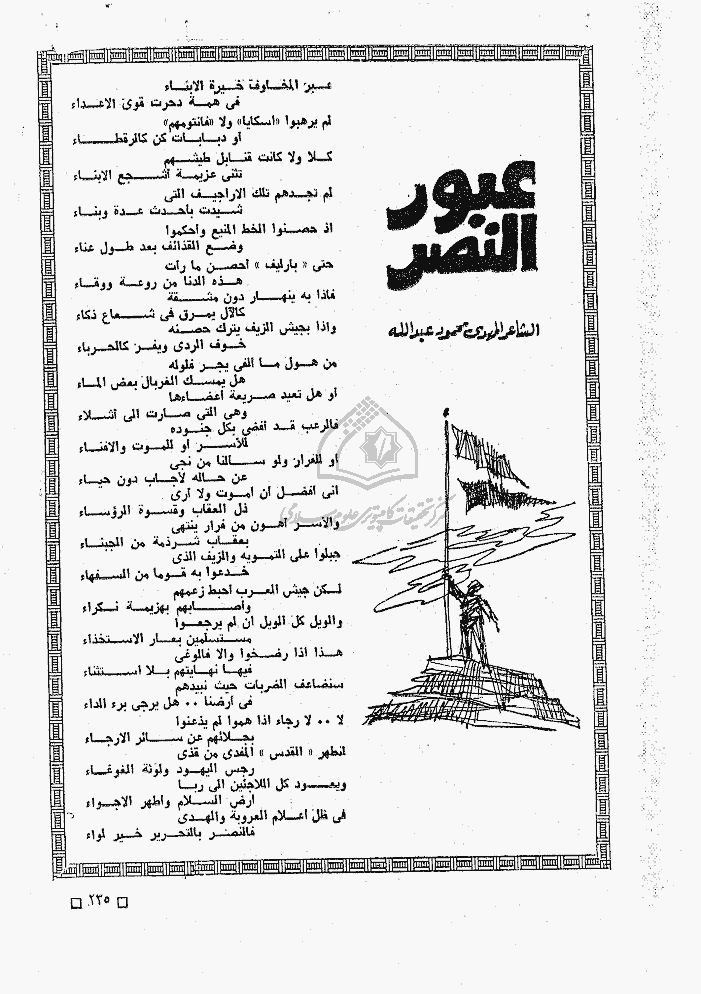 عبور
النصر
الشاعر المهدى محمود عبدالله
عبر المخاوف خيرة الابناء
فى همة دحرت قوى الاعداء
لم يرهبوا «اسكايا» ولا «فانتومهم»
أو دبابات كن كالرقطاء
كلا ولا كانت قنابل طيشهم
تثنى عزيمة أشجع الابناء
لم تجدهم تلك الاراجيف التى
شيدت بأحدث عدة وبناء
اذ حصنوا الخط المنيع وأحكموا
وضع القذائف بعد طول عناء
حتى «بارليف» أحصن ما رأت
هذه الدنا من روعة ووقاء
فاذا به ينهار دون مشقة
كالآل يمرق فى شعاع ذكاء
واذا بجيش الزيف يترك حصنه
خوف الردى ويفر كالحرباء
من هول ما ألفى يجر فلوله
هل يمسك الغربال بعض الماء
أو هل تعيد صريعة أعضاءها
وهى التى صارت الى أشلاء
فالرعب قد أفضى بكل جنوده
للأسر أو للموت والافناء
أو للفرار ولو سألنا من نجى
عن حاله لأجاب دون حياء
انى أفضل أن أموت ولا أرى
ذل العقاب وقسوة الرؤساء
والأسر أهون من فرار ينتهى
بعقاب شرذمة من الجبناء
جبلوا على التمويه والزيف الذى
خدعوا به قوما من السفهاء
لكن جيش العرب أحبط زعمهم
وأصابهم بهزيمة نكراء
والويل كل الويل ان لم يرجعوا
مستسلمين بعار الاستخذاء
هذا اذا رضخوا والا فالوغى
فيها نهايتهم بلا استثناء
سنضاعف الضربات حيث نبيدهم
فى أرضنا ٠٠ هل يرجى برء الداء
لا ٠٠ لا رجاء اذا هموا لم يذعنوا
بجلائهم عن سائر الارجاء
لنطهر «القدس» المفدى من قذى
رجس اليهود ولوثة الغوغاء
ويعود كل اللاجئين الى ربا
أرض السلام وأطهر الاجواء
فى ظل أعلام العروبة والهدى
فالنصر بالتحرير خير لواء
٢٣٥